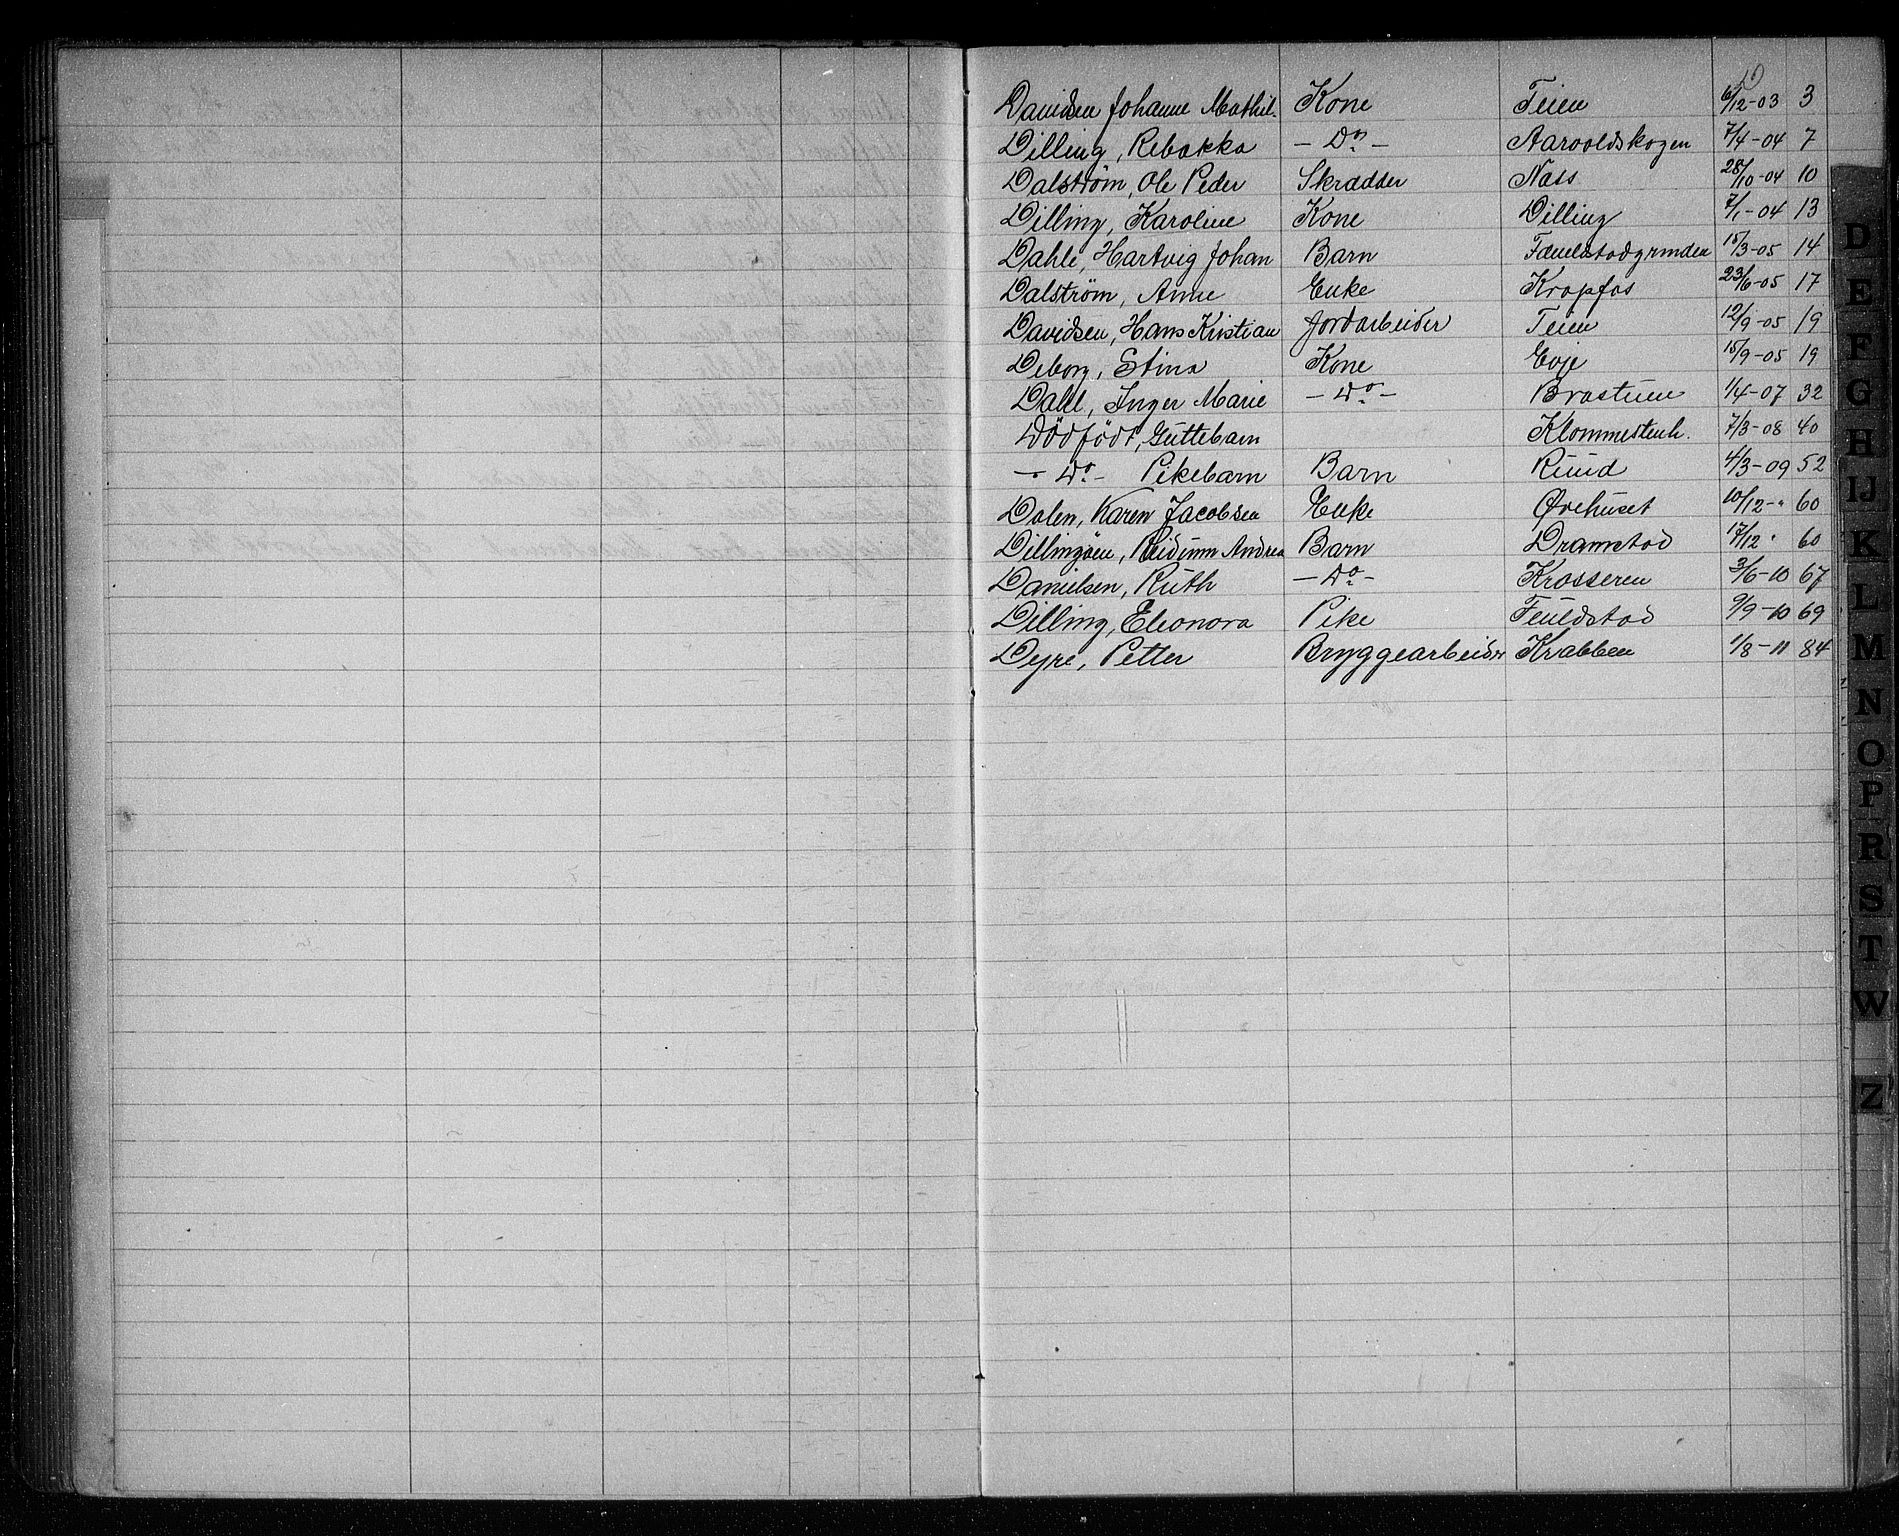 D
Davidsen Johanne Mathil. Kone Teien 6/12-03 3
Dilling, Rebekka - Do - Aarvoldskogen 7/4-04 7
Dalström, Ole Peder Skrædder Næss 28/10-04 10
Dilling, Karoline Kone Dilling 7/1-04 13
Dahle, Hartvig Johan Barn 15/3-05 14
Dalström, Anne Enke Kropfos 23/6-05 17
Davidsen, Hans Kristian Jordarbeider Teien 12/9-05 19
Deborg, Stina Kone Evje 15/9-05 19
Dahl, Inger Marie - Do - Bråstuen 1/4-07 32
Dödfödt, Guttebarn Klommestenh. 7/3-08 40
- Do - Pikebarn Barn Ruud 4/3-09 52
Dalen, Karen Jacobsen Enke Ørehuset 10/12-" 60
Dillingöen, Reidunn Andrea Barn Dramstad 17/12 " 60
Danielsen, Ruth - Do - Krosseren 3/6-10 67
Dilling, Eleonora Pike Feuldstad 9/9-10 69
Dyre, Petter Bryggearbeider Krabben 1/8-11 84
D
E
F
G
H
IJ
K
L
M
N
O
P
R
S
T
W
Z